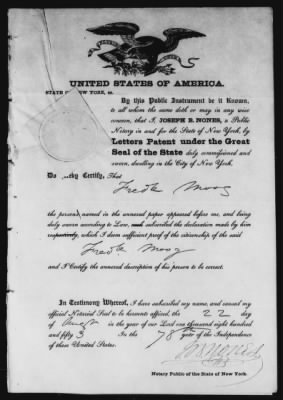 UNITED STATES OF AMERICA.
STATE OF NEW YORK, ss.
By this Public Instrument be it Known,
to all whom the same doth or may in any wise
concern, that I, JOSEPH B. NONES, a Public
Notary in and for the State of New York, by
Letters Patent under the Great
Seal of the State duly commissioned and
sworn, dwelling in the City of New York.
Do eby Certify, That
Fredk Moog
the persons named in the annexed paper appeared before me, and being
duly sworn according to Law, subscribed the declaration made by him
respectively, which I deem sufficient proof of the citizenship of the said
Fredk Moog
and I Certify the annexed description of his person to be correct.
In Testimony Whereof, I have subscribed my name, and caused my
official Notarial Seal to be hereunto affixed, the 22 day
of in the year of our Lord one thousand eight hundred
and fifty 3 In the 78 year of the Independence
of these United States.
JB Nones
Notary Public of the State of New York.